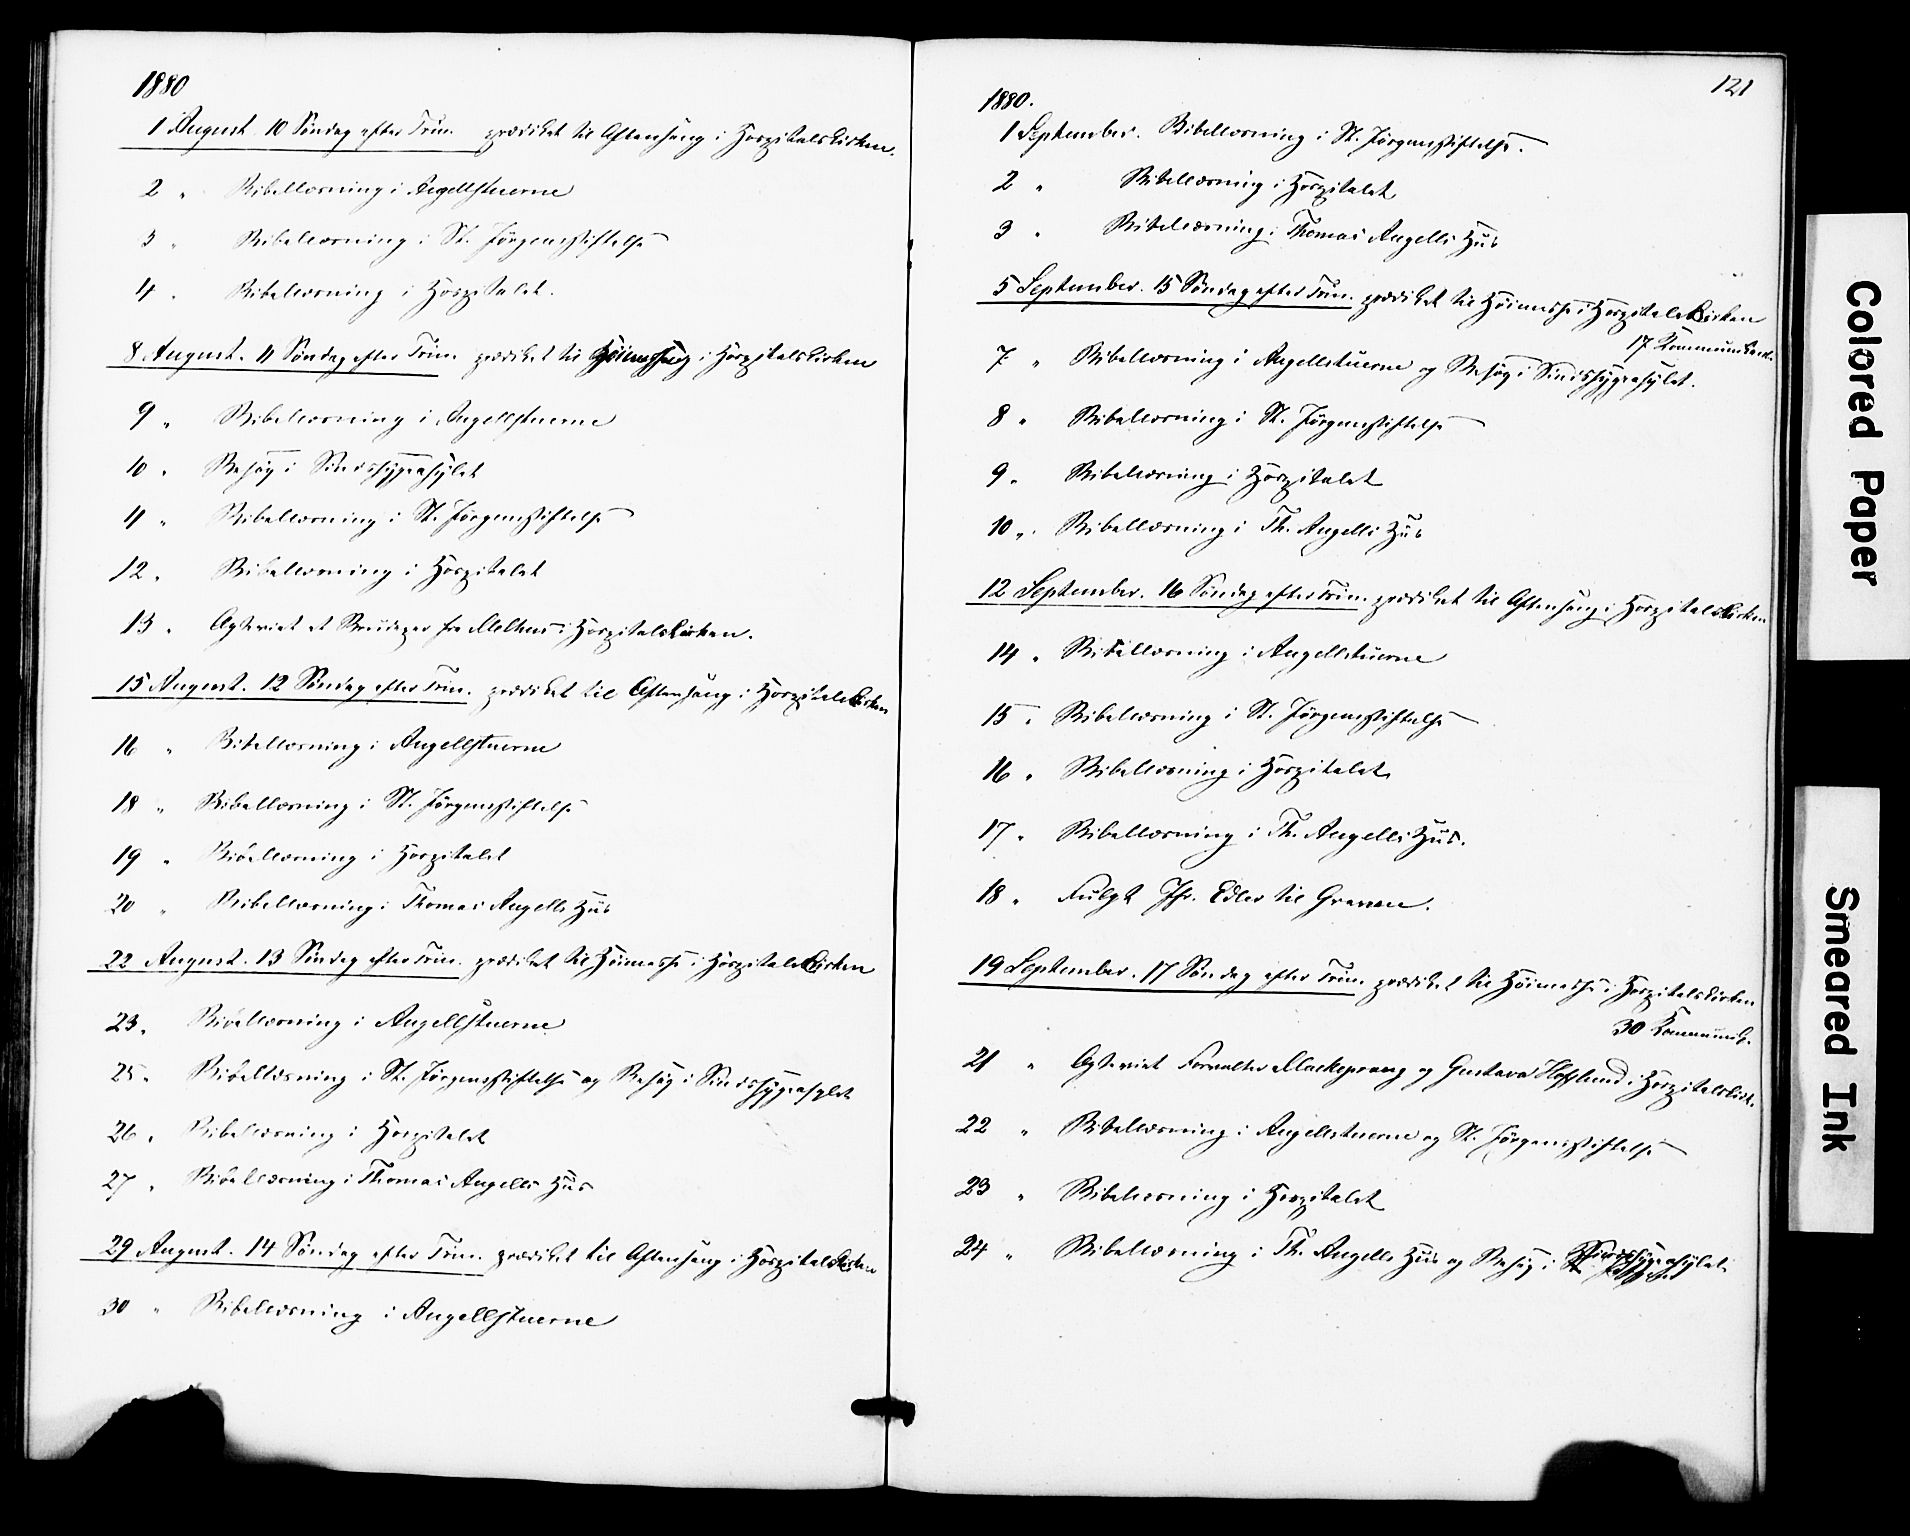 1880
1 August. 10 Søndag efter Trin. prædiket til Aftensang i Hospitalskirken.
2 " Bibellæsning i Angellstuerne
3 " Bibellæsning i St. Jörgensstiftelse
4 " Bibellæsning i Hospitalet.
8 August. 11 Søndag efter Trin. prædiket til i Hospitalskirken
9 " Bibellæsning i Angellstuerne
10 " Besøg i Sindssygeasylet
11 " Bibellæsning i St. Jörgensstiftelse
12 " Bibellæsning i Hospitalet
13 " Agteviet et Brudepar fra Melhus i Hospitalskirken.
15 August. 12 Søndag efter Trin. prædiket til Aftensang i Hospitalskirken
16 " Bibellæsning i Angellstuerne
18 " Bibellæsning i St. Jörgensstiftelse
19 " Bibellæsning i Hospitalet
20 " Bibellæsning i Thomas Angells Hus
22 August. 13 Søndag efter Trin. prædiket til Høimesse i Hospitalskirken
23 " Bibellæsning i Angellstuerne
25 " Bibellæsning i St. Jörgensstiftelse og Besøg i Sindssygeasylet
26 " Bibellæsning i Hospitalet
27 " Bibellæsning i Thomas Angells Hus
29 August. 14 Søndag efter Trin. prædiket til Aftensang i Hospitalskirken
30 " Bibellæsning i Angellstuerne
121
1880.
1 September. Bibellæsning i St. Jörgensstiftelse.
2 " Bibellæsning i Hospitalet
3 " Bibellæsning i Thomas Angells Hus
5 September. 15 Søndag efter Trin. prædiket til Høimesse i Hospitalskirken
17 Kommunikant.
7 " Bibellæsning i Angellstuerne og Besøg i Sindssygeasylet.
8 " Bibellæsning i St. Jörgensstiftelse
9 " Bibellæsning i Hospitalet
10 " Bibellæsning i Th. Angells Hus
12 September. 16 Søndag efter Trin. prædiket til Aftensang i Hospitalskirken
14 " Bibellæsning i Angellstuerne
15 " Bibellæsning i St. Jörgensstiftelse
16 " Bibellæsning i Hospitalet
17 " Bibellæsning i Th. Angells Hus.
18 " Fulgt Jfr. Edler til Graven.
19 September. 17 Søndag efter Trin. prædiket til Høimesse i Hospitalskirken
30 Kommunik.
21 " Agteviet Forvalter Mackeprang og Gustava Hofflund i Hospitalskirk.
22 " Bibellæsning i Angellstuerne og St. Jörgensstiftelse
23 " Bibellæsning i Hospitalet
24 " Bibellæsning i Th. Angells Hus og Besøg i Sindssygeasylet
Colored Paper
Smeared Ink